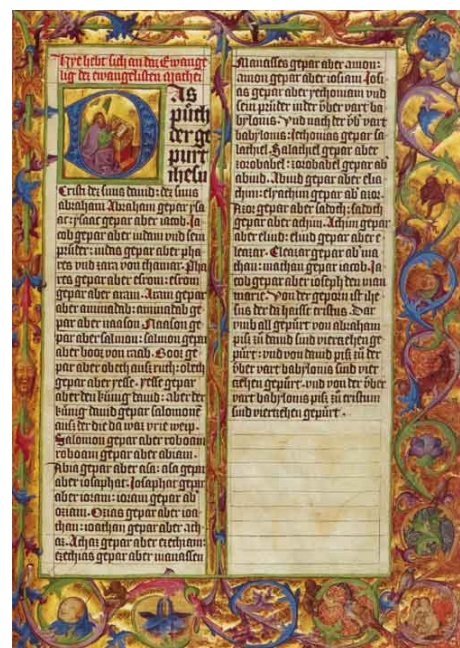 Hye hebt sich an der Ewange
lig des ewangelisten Mathei
Das
puch
der ge
purt
ihesu
Cristi des suns dauid: des suns
abraham Abraham gepar ysa
ac: ysaac gepar aber iacob. Ja
cob gepar aber iudam vnd sein
prüder: iudas gepar aber pha
res vnd zara von thamar. Pha
res gepar aber esrom: esrom
gepar aber aram. Aram gepar
aber aminadab: aminadab ge
par aber naason. Naason ge
par aber salmon: salmon gepar
aber booz von raab. Booz ge
par aber obeth auß ruth: obeth
gepar aber yesse. Yesse gepar
aber den künig dauid: aber der
künig dauid gepar salomonē
auß der die da waz vrie weip.
Salomon gepar aber roboam
roboam gepar aber abiam.
Abia gepar aber asa: asa gepar
aber iosaphat. Josaphat gepar
aber ioram: ioram gepar ab
oziam. Ozias gepar aber ioa
than: ioathan gepar aber ach
az. Achaz gepar aber ezechiam:
ezechias gepar aber manassen
Manasses gepar aber amon:
amon gepar aber iosiam. Josi
as gepar aber yechoniam vnd
sein prüder in der vber vart ba
bylonis. Vnd nach der vb vart
babylonis: Jechonias gepar sa
lathiel. Salathiel gepar aber
zorobabel: zorobabel gepar ab
abiud. Abiud gepar aber elia
chim: elyachim gepar ab azor.
Azor gepar aber sadoch: sadoch
gepar aber achim. Achim gepar
aber eliud: eliud gepar aber e
leazar. Eleazar gepar ab ma
than: mathan gepar iacob. Ja
cob gepar aber ioseph den man
marie. Von der geporn ist ihe
sus der da haisst cristus. Dar
vmb all gepürt von abraham
piß zu dauid sind vierzehen ge
pürt: vnd von dauid piß zu der
vber vart babylonis sind vier
zehen gepürt. vnd von der vber
vart babylonis piß zu cristum
sind vierzehen gepürt.